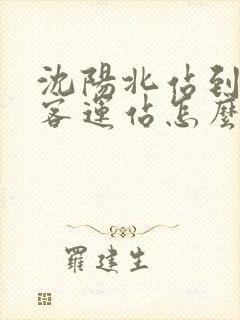 沈陽北站到
客運站怎麼
羅建生